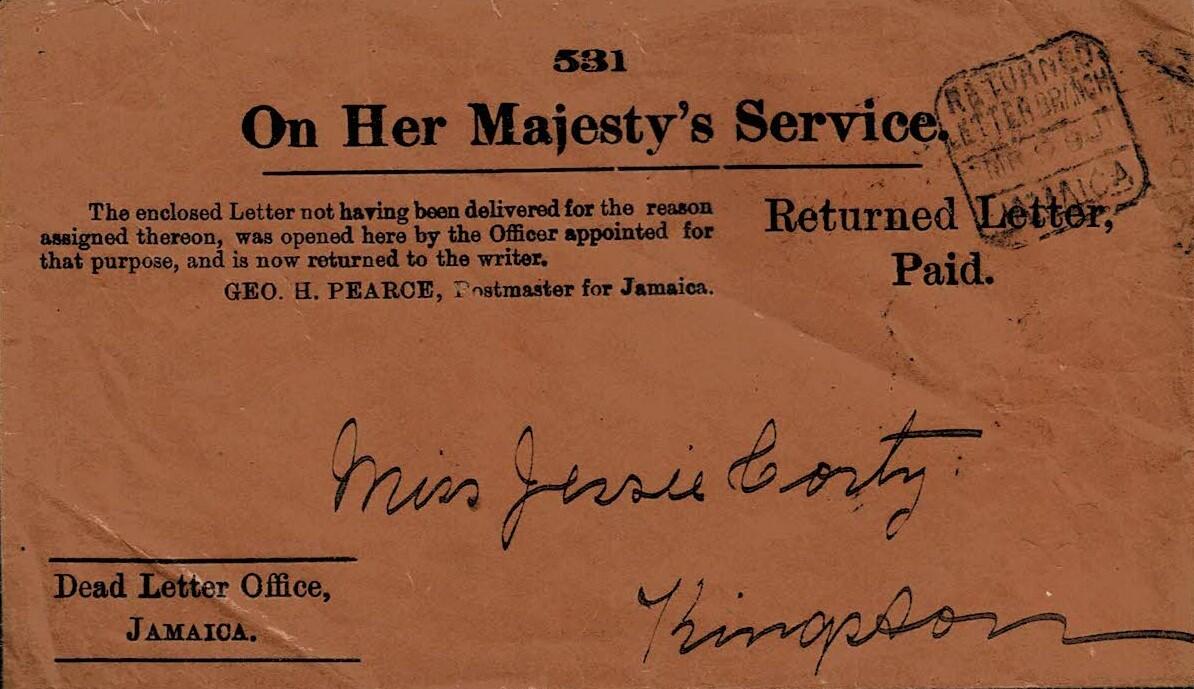 531
On Her Majesty's Service.
RETURNED
LETTER BRANCH
JAMAICA
The enclosed Letter not having been delivered for the reason
assigned thereon, was opened here by the Officer appointed for
that purpose, and is now returned to the writer.
GEO. H. PEARCE, Postmaster for Jamaica.
Returned Letter,
Paid.
Miss Jessie Corty.
Kingston
Dead Letter Office,
JAMAICA.